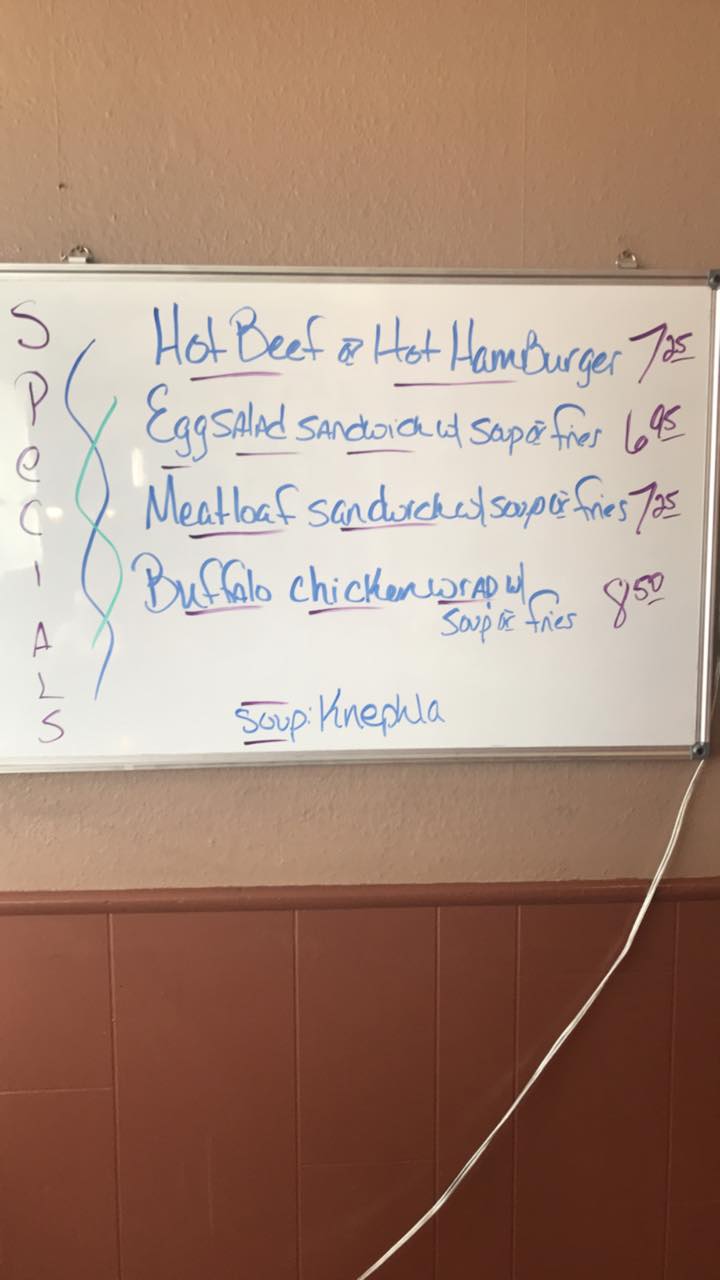 SPeCIALS
Hot Beef or Hot HamBurger 7.25
Egg SALAD SANdwich w/ Soup or fries 6.95
Meatloaf sandwich w/ soup or fries 7.25
Buffalo chicken wrap w/ 8.50
Soup or fries
Soup: Knephla